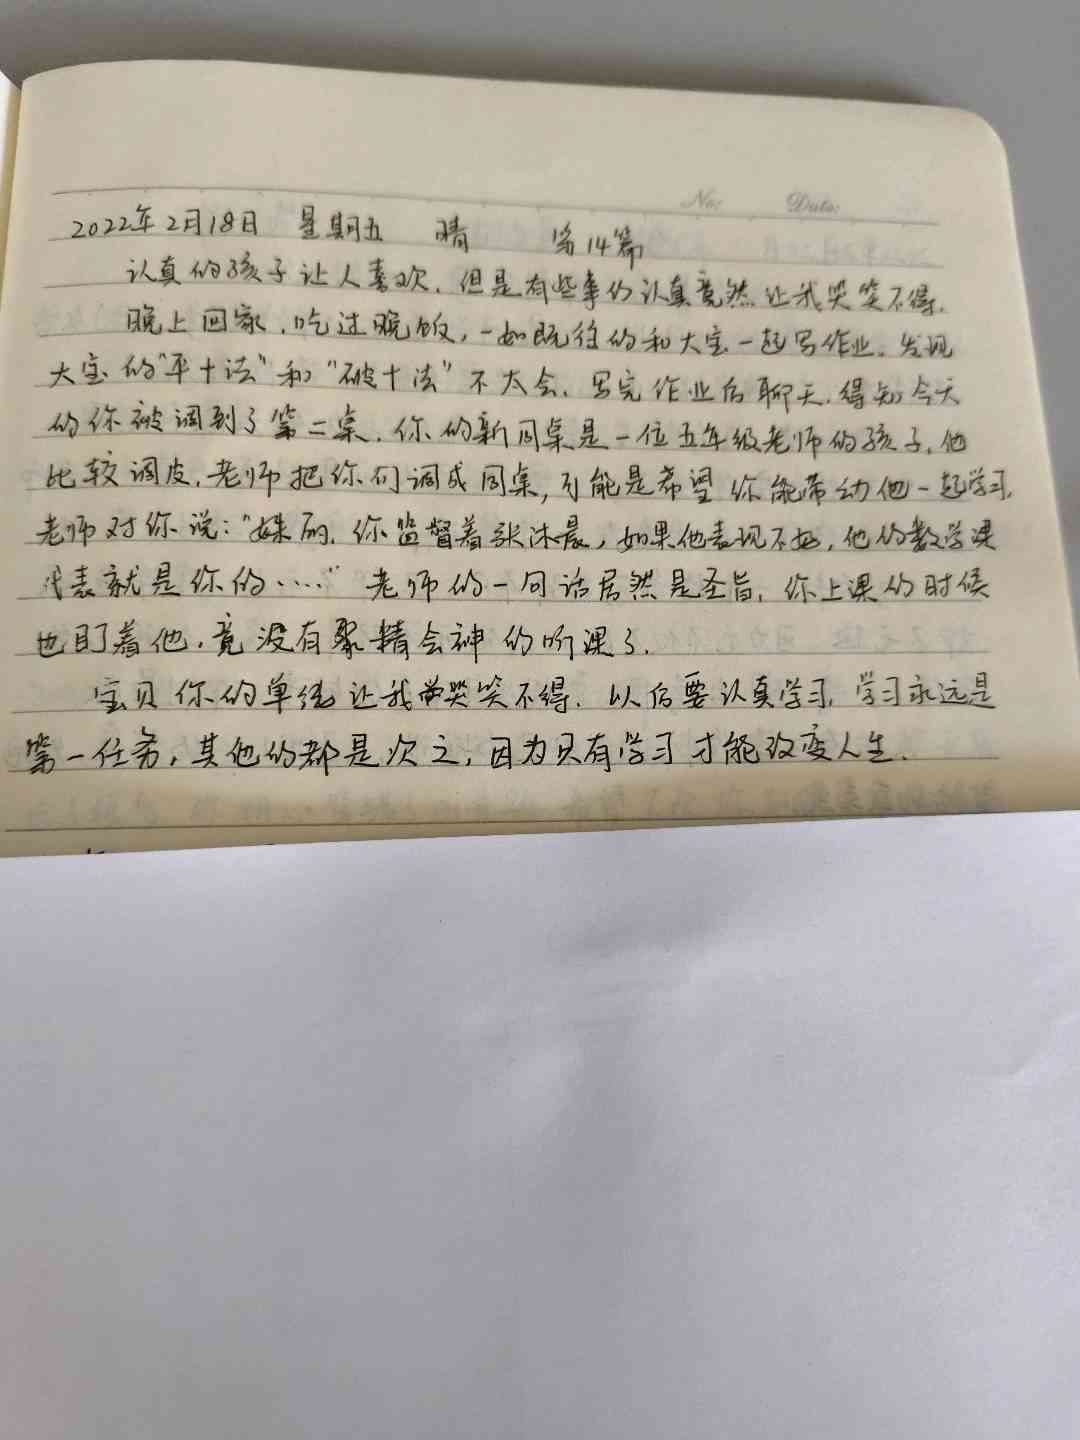 No: Date:
2022年2月18日 星期五 晴 第14篇
认真的孩子让人喜欢,但是有些事的认真竟然让我哭笑不得.
晚上回家,吃过晚饭,一如既往的和大宝一起写作业,发现
大宝的"平十法"和"破十法"不太会,写完作业后聊天,得知今天
的你被调到了第二桌,你的新同桌是一位五年级老师的孩子,他
比较调皮,老师把你们调成同桌,可能是希望你能带动他一起学习,
老师对你说:"姝丽,你监督着张沐晨,如果他表现不好,他的数学课
代表就是你的……"老师的一句话居然是圣旨,你上课的时候
也盯着他,竟没有聚精会神的听课了.
宝贝你的单纯让我哭笑不得.以后要认真学习,学习永远是
第一任务,其他的都是次之,因为只有学习才能改变人生.